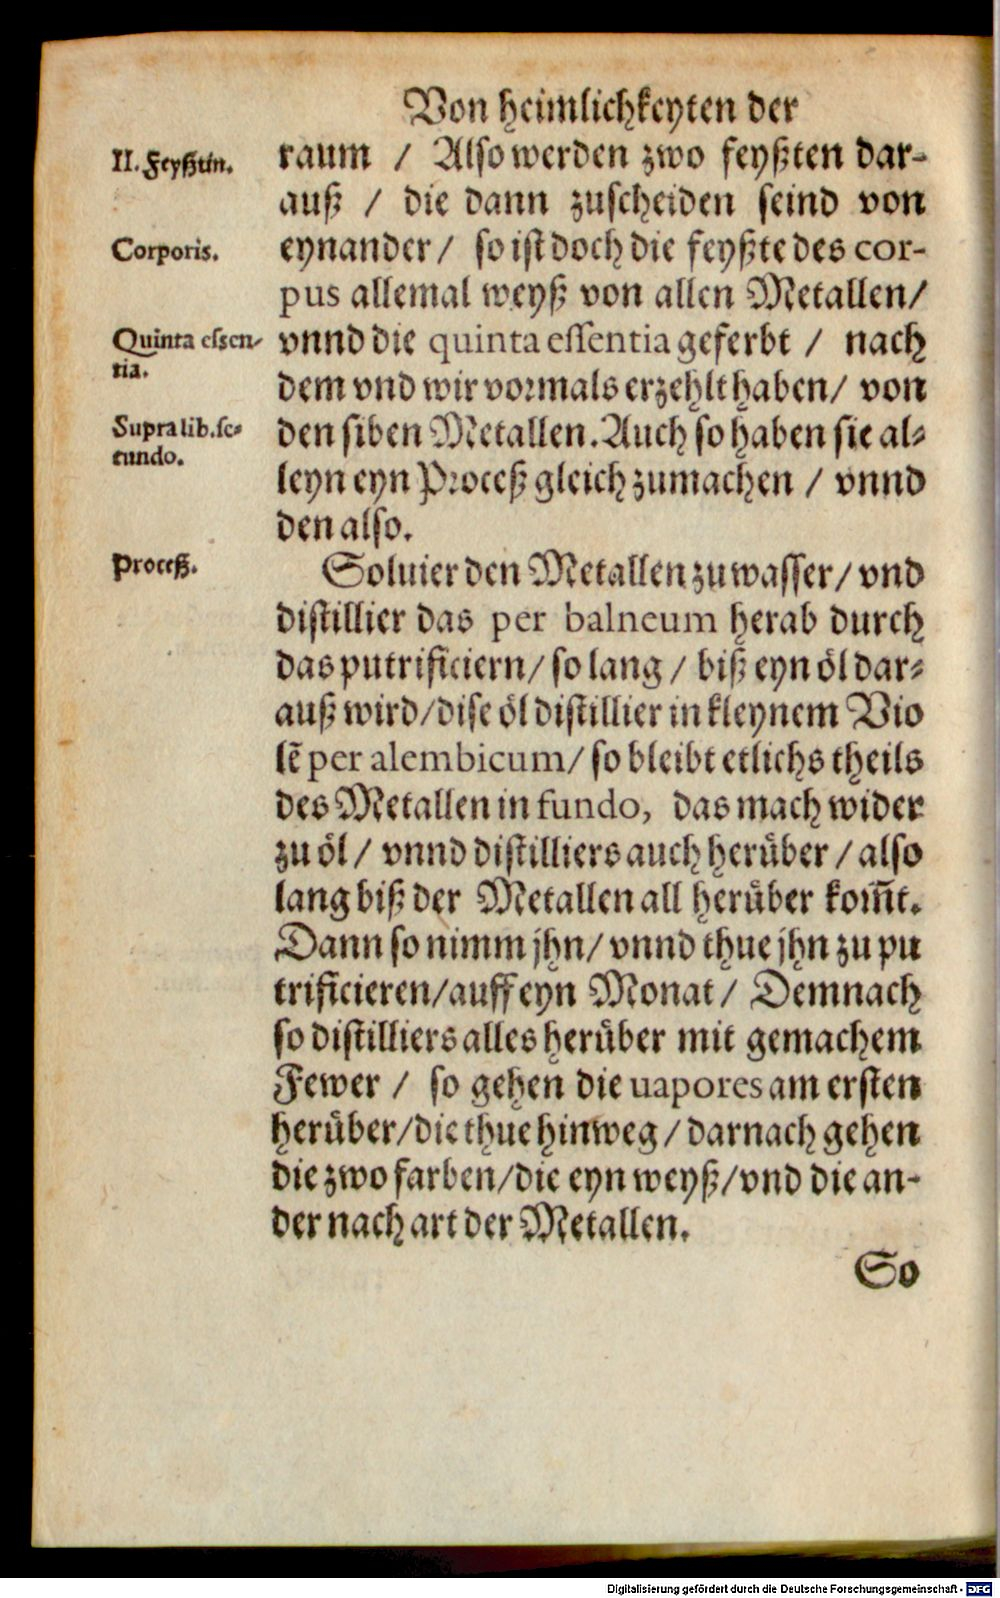 Von heimlichkeyten der
II. Feyßtin.
raum / Also werden zwo feyßten dar-
auß / die dann zuscheiden seind von
Corporis.
eynander / so ist doch die feyßte des cor-
pus allemal weyß von allen Metallen /
Quinta essen-
tia.
vnnd die quinta essentia geferbt / nach
dem vnd wir vormals erzehlt haben / von
Supra lib. se-
cundo.
den siben Metallen. Auch so haben sie al-
leyn eyn Proceß gleich zumachen / vnnd
den also.
Proceß.
Soluier den Metallen zu wasser / vnd
distillier das per balneum herab durch
das putrificiern / so lang / biß eyn öl dar-
auß wird / dise öl distillier in kleynem Vio
lē per alembicum / so bleibt etlichs theils
des Metallen in fundo, das mach wider
zu öl / vnnd distilliers auch herüber / also
lang biß der Metallen all herüber kom̄t.
Dann so nimm jhn / vnnd thue jhn zu pu
trificieren / auff eyn Monat / Demnach
so distilliers alles herüber mit gemachem
Fewer / so gehen die uapores am ersten
herüber / die thue hinweg / darnach gehen
die zwo farben / die eyn weyß / vnd die an-
der nach art der Metallen.
So
Digitalisierung gefördert durch die Deutsche Forschungsgemeinschaft - DFG